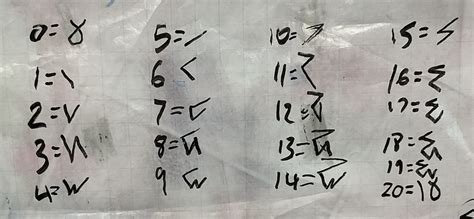 0=𝋀
1=𝋁
2=𝋂
3=𝋃
4=𝋄
5=𝋅
6 𝋆
7=𝋇
8=𝋈
9 𝋉
10=𝋊
11=𝋋
12=𝋌
13=𝋍
14=𝋎
15=𝋏
16=𝋐
17=𝋑
18=𝋒
19=𝋓
20=𝋁𝋀